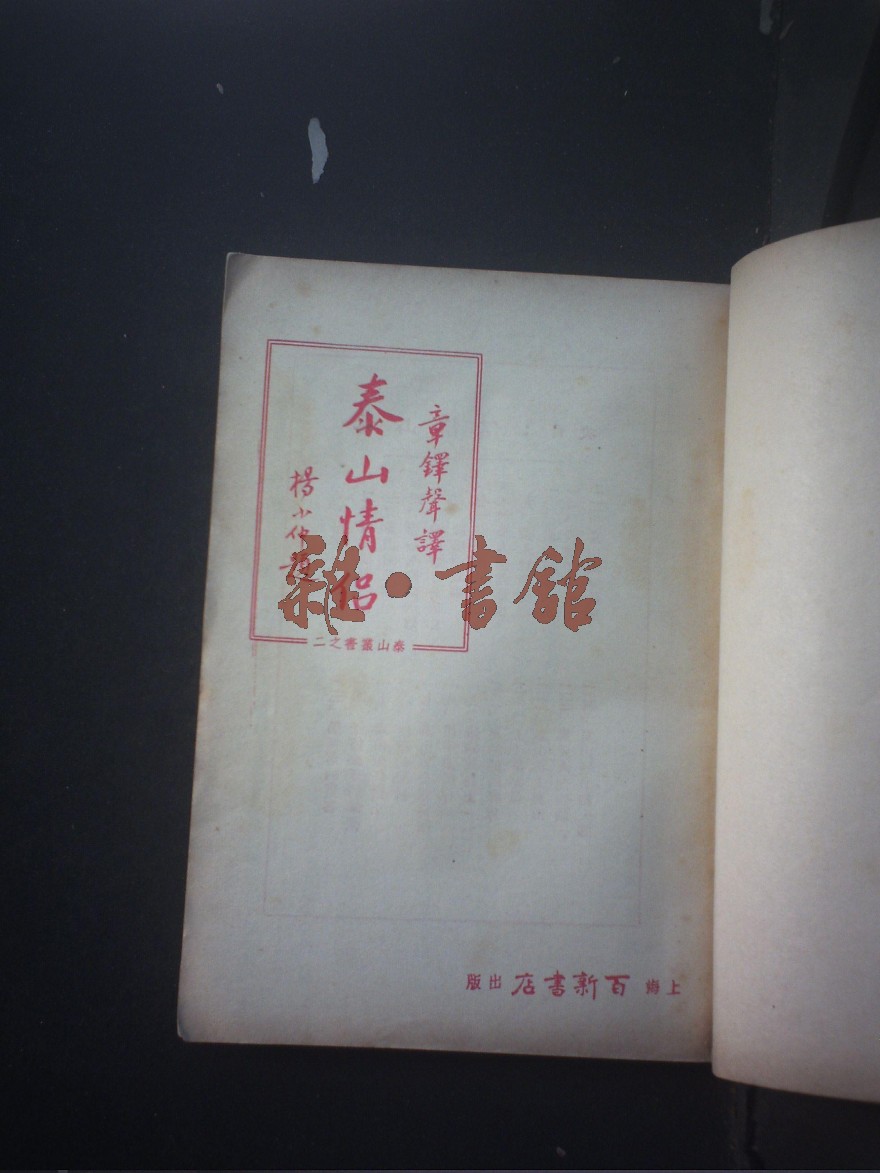 章鐸聲譯
泰山情侶
楊小仲題
泰山叢書之二
雜·書館
上海 百新書店 出版